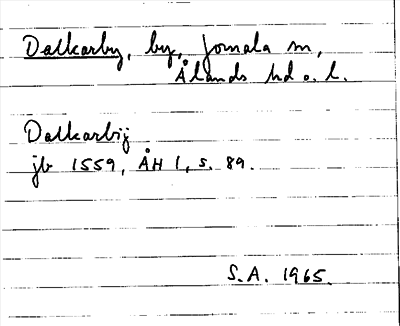 Dalkarby, by, Jomala sn,
Ålands hd o. l.
Dalkarbij
jb 1559, ÅH 1, s. 89.
S.A. 1965.